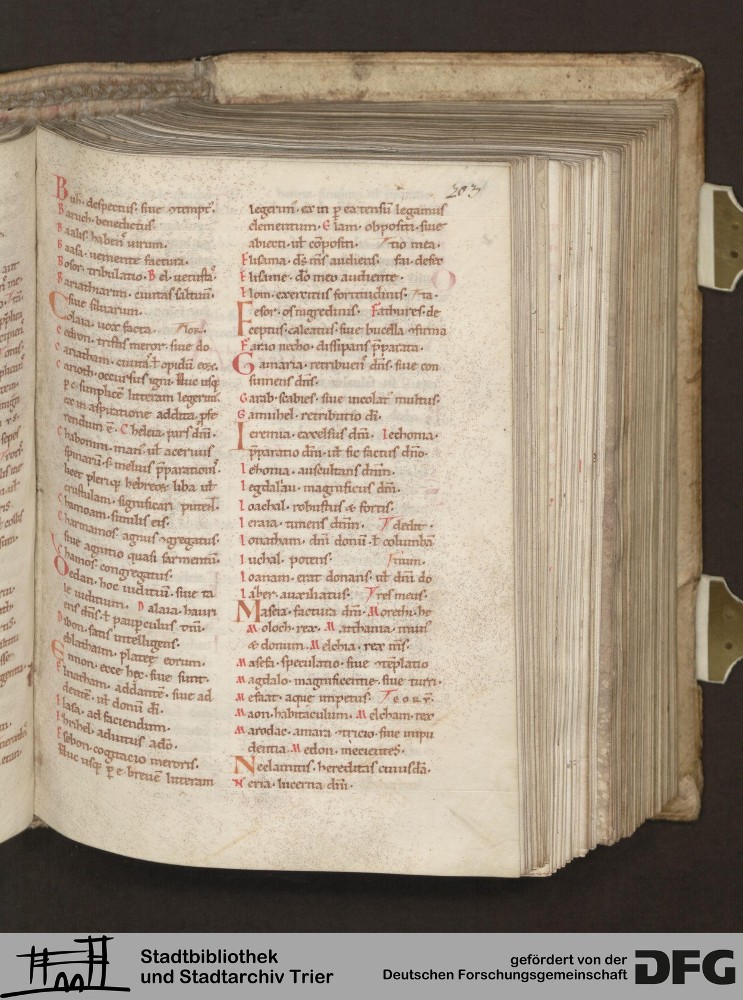 203
Buz. despectus. siue
Baruch. benedictus.
Baalis. habens uirum.
Baasa. uemente factura.
Bosor. tribulatio. Bel. uetustas.
Cariathiarim. ciuitas saltuum.
siue siluarum.
Colaia. uox facta.
Cedron. tristis meror. siue do
Cariatham. ciuitas ł opidū eoꝝ.
Carioth. occursus igni. Huc usq;
p c. simplicē litteram legerim.
ex in aspiratione addita pfe
rendum ē. Chelcia. pars dn̄i.
Chabonim. mari. uł aceruus
spinarū. s; melius p̄paratiōnē.
heet pleriq; hebreos liba uł
crustulam. significari putent.
Chamoam. similis eis.
Charmamos. agnus
siue agnitio quasi sarmentū.
Chamos. congregatus.
Oedan. hoc iudiciū. siue ta
le iuditium. Dalaia. hauri
ens dn̄s. ł paup̄culus
Dibon. satis intelligens.
Eblatham. plateę eorum.
Ennon. ecce hęc. siue sunt.
Elnatham. addante. siue ad
dentē. uł donū dī.
Elasa. ad faciendum.
Ezrihel. adiutus a dō.
Esebon. cogitatio meroris.
Huc usq; p̱ e. breuē litteram
legerim. ex in p̱ ea tensū legamus
clementium. Elam. oppositi. siue
abiecti. uł cōpositi. tio mea.
Elisama. dš m̄s audiens. sal
Elisame. dō meo audiente.
Elom. exercitus fortitudinis. ta.
Fesor. os nigredinis. Fathures. de
ceptus. caleatus. siue bucella
Farao necho. dissipans p̄parata.
Gamaria. retribuens dn̄s. siue con
sumens dn̄s.
Garab. scabies. siue incolat multus.
Gamuhel. retributio dī.
Ieremia. excelsus dn̄i. Iechonia.
p̄paratio dn̄i. uł sic factus dn̄o.
Iezonia. auscultans dn̄m.
Iegdalau. magnificus dn̄i.
Ioachal. robustus & fortis.
Ieraia. timens dn̄m. dedit.
Ionatham. dn̄i donū. ł columba
Iuchal. potens. tium.
Ioanam. erat donans. uł dn̄i do
Iaber. auxiliatus. tres meus.
Maseia. factura dn̄i. Morethi. he
Moloch. rex. Matthania. mun'
& donum. Melchia. rex m̄s.
Masefa. speculatio. siue
Magdalo. magnificentie. siue turri.
Mesaat. aque impetus.
Maon. habitaculum. Melcham. rex
Marodac. amara siue inpu
dentia. Medon.
Neelamitis. hereditas cuiusdā.
Neria. lucerna dn̄i.
Stadtbibliothek
und Stadtarchiv Trier
gefördert von der
Deutschen Forschungsgemeinschaft
DFG